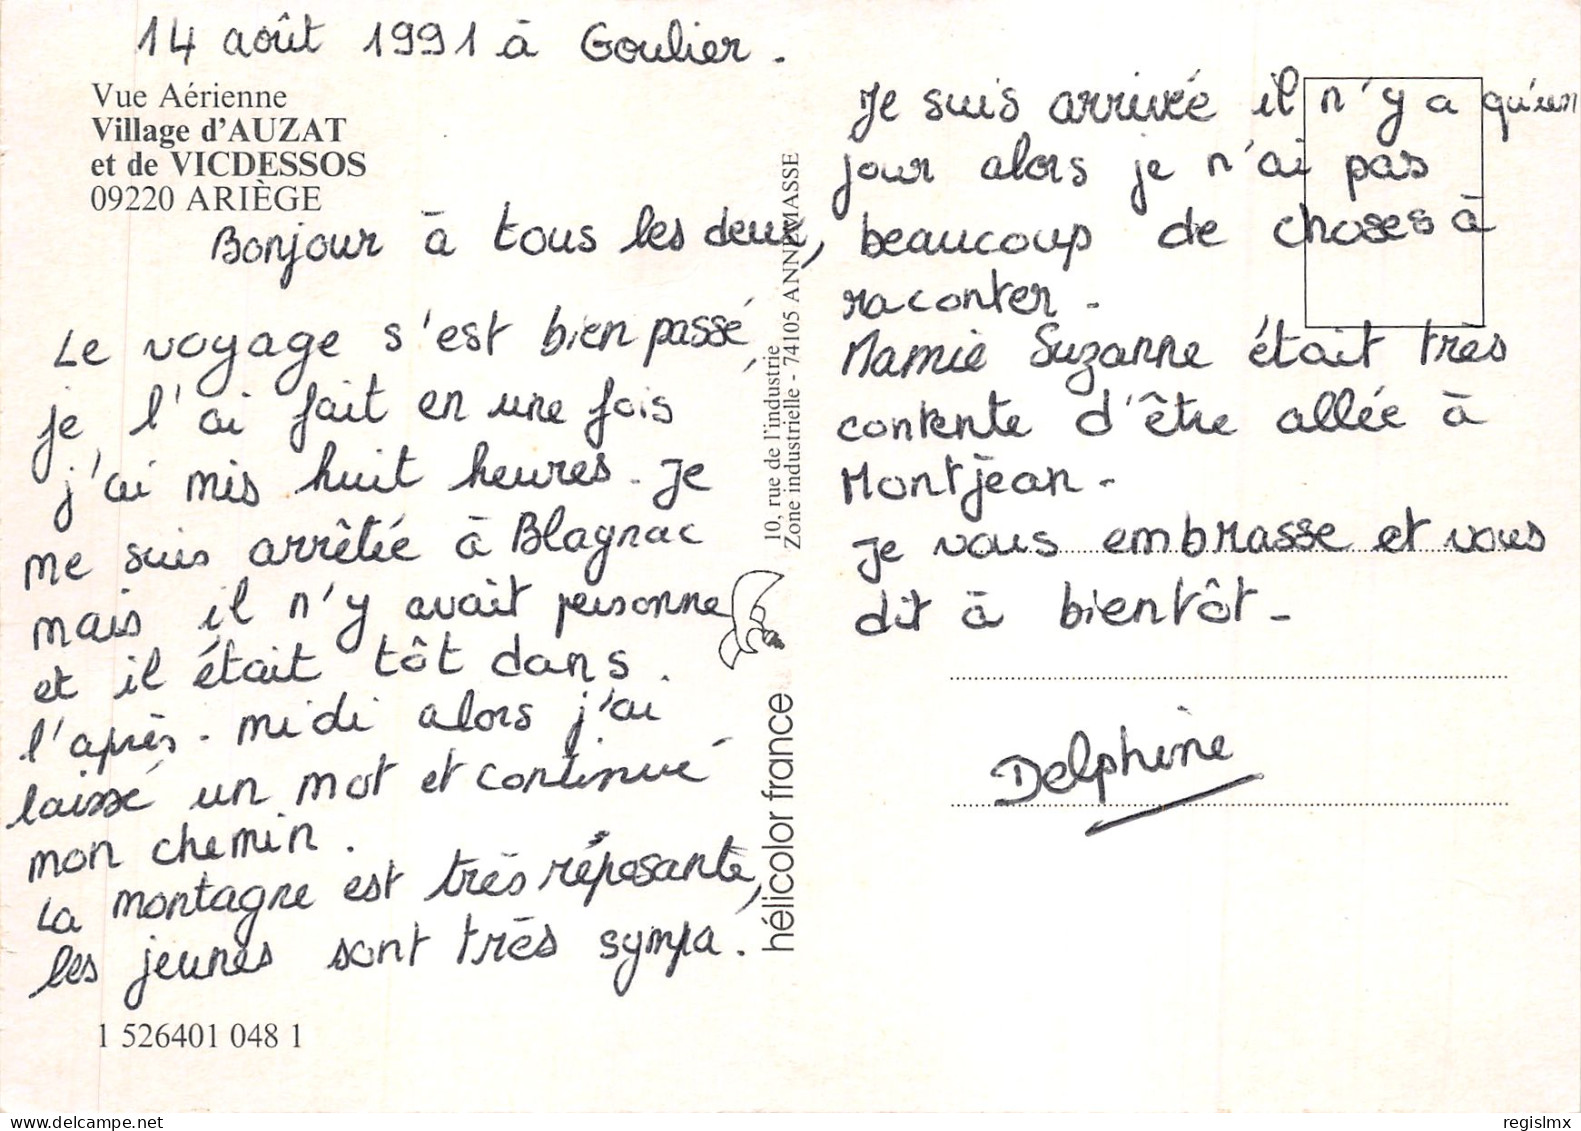 14 août 1991 à Goulier.
Vue Aérienne
Village d'AUZAT
et de VICDESSOS
09220 ARIÈGE
Bonjour à tous les deux,
Le voyage s'est bien passé,
je l'ai fait en une fois
j'ai mis huit heures. Je
me suis arrêtée à Blagnac
mais il n'y avait personne
et il était tôt dans
l'après-midi alors j'ai
laissé un mot et continué
mon chemin.
La montagne est très réposante,
les jeunes sont très sympa.
1 526401 048 1
10, rue de l'industrie
Zone industrielle - 74105 ANNEMASSE
hélicolor france
Je suis arrivée il n'y a qu'un
jour alors je n'ai pas
beaucoup de choses à
raconter.
Mamie Suzanne était très
contente d'être allée à
Montjean.
Je vous embrasse et vous
dit à bientôt.
Delphine
regislmx